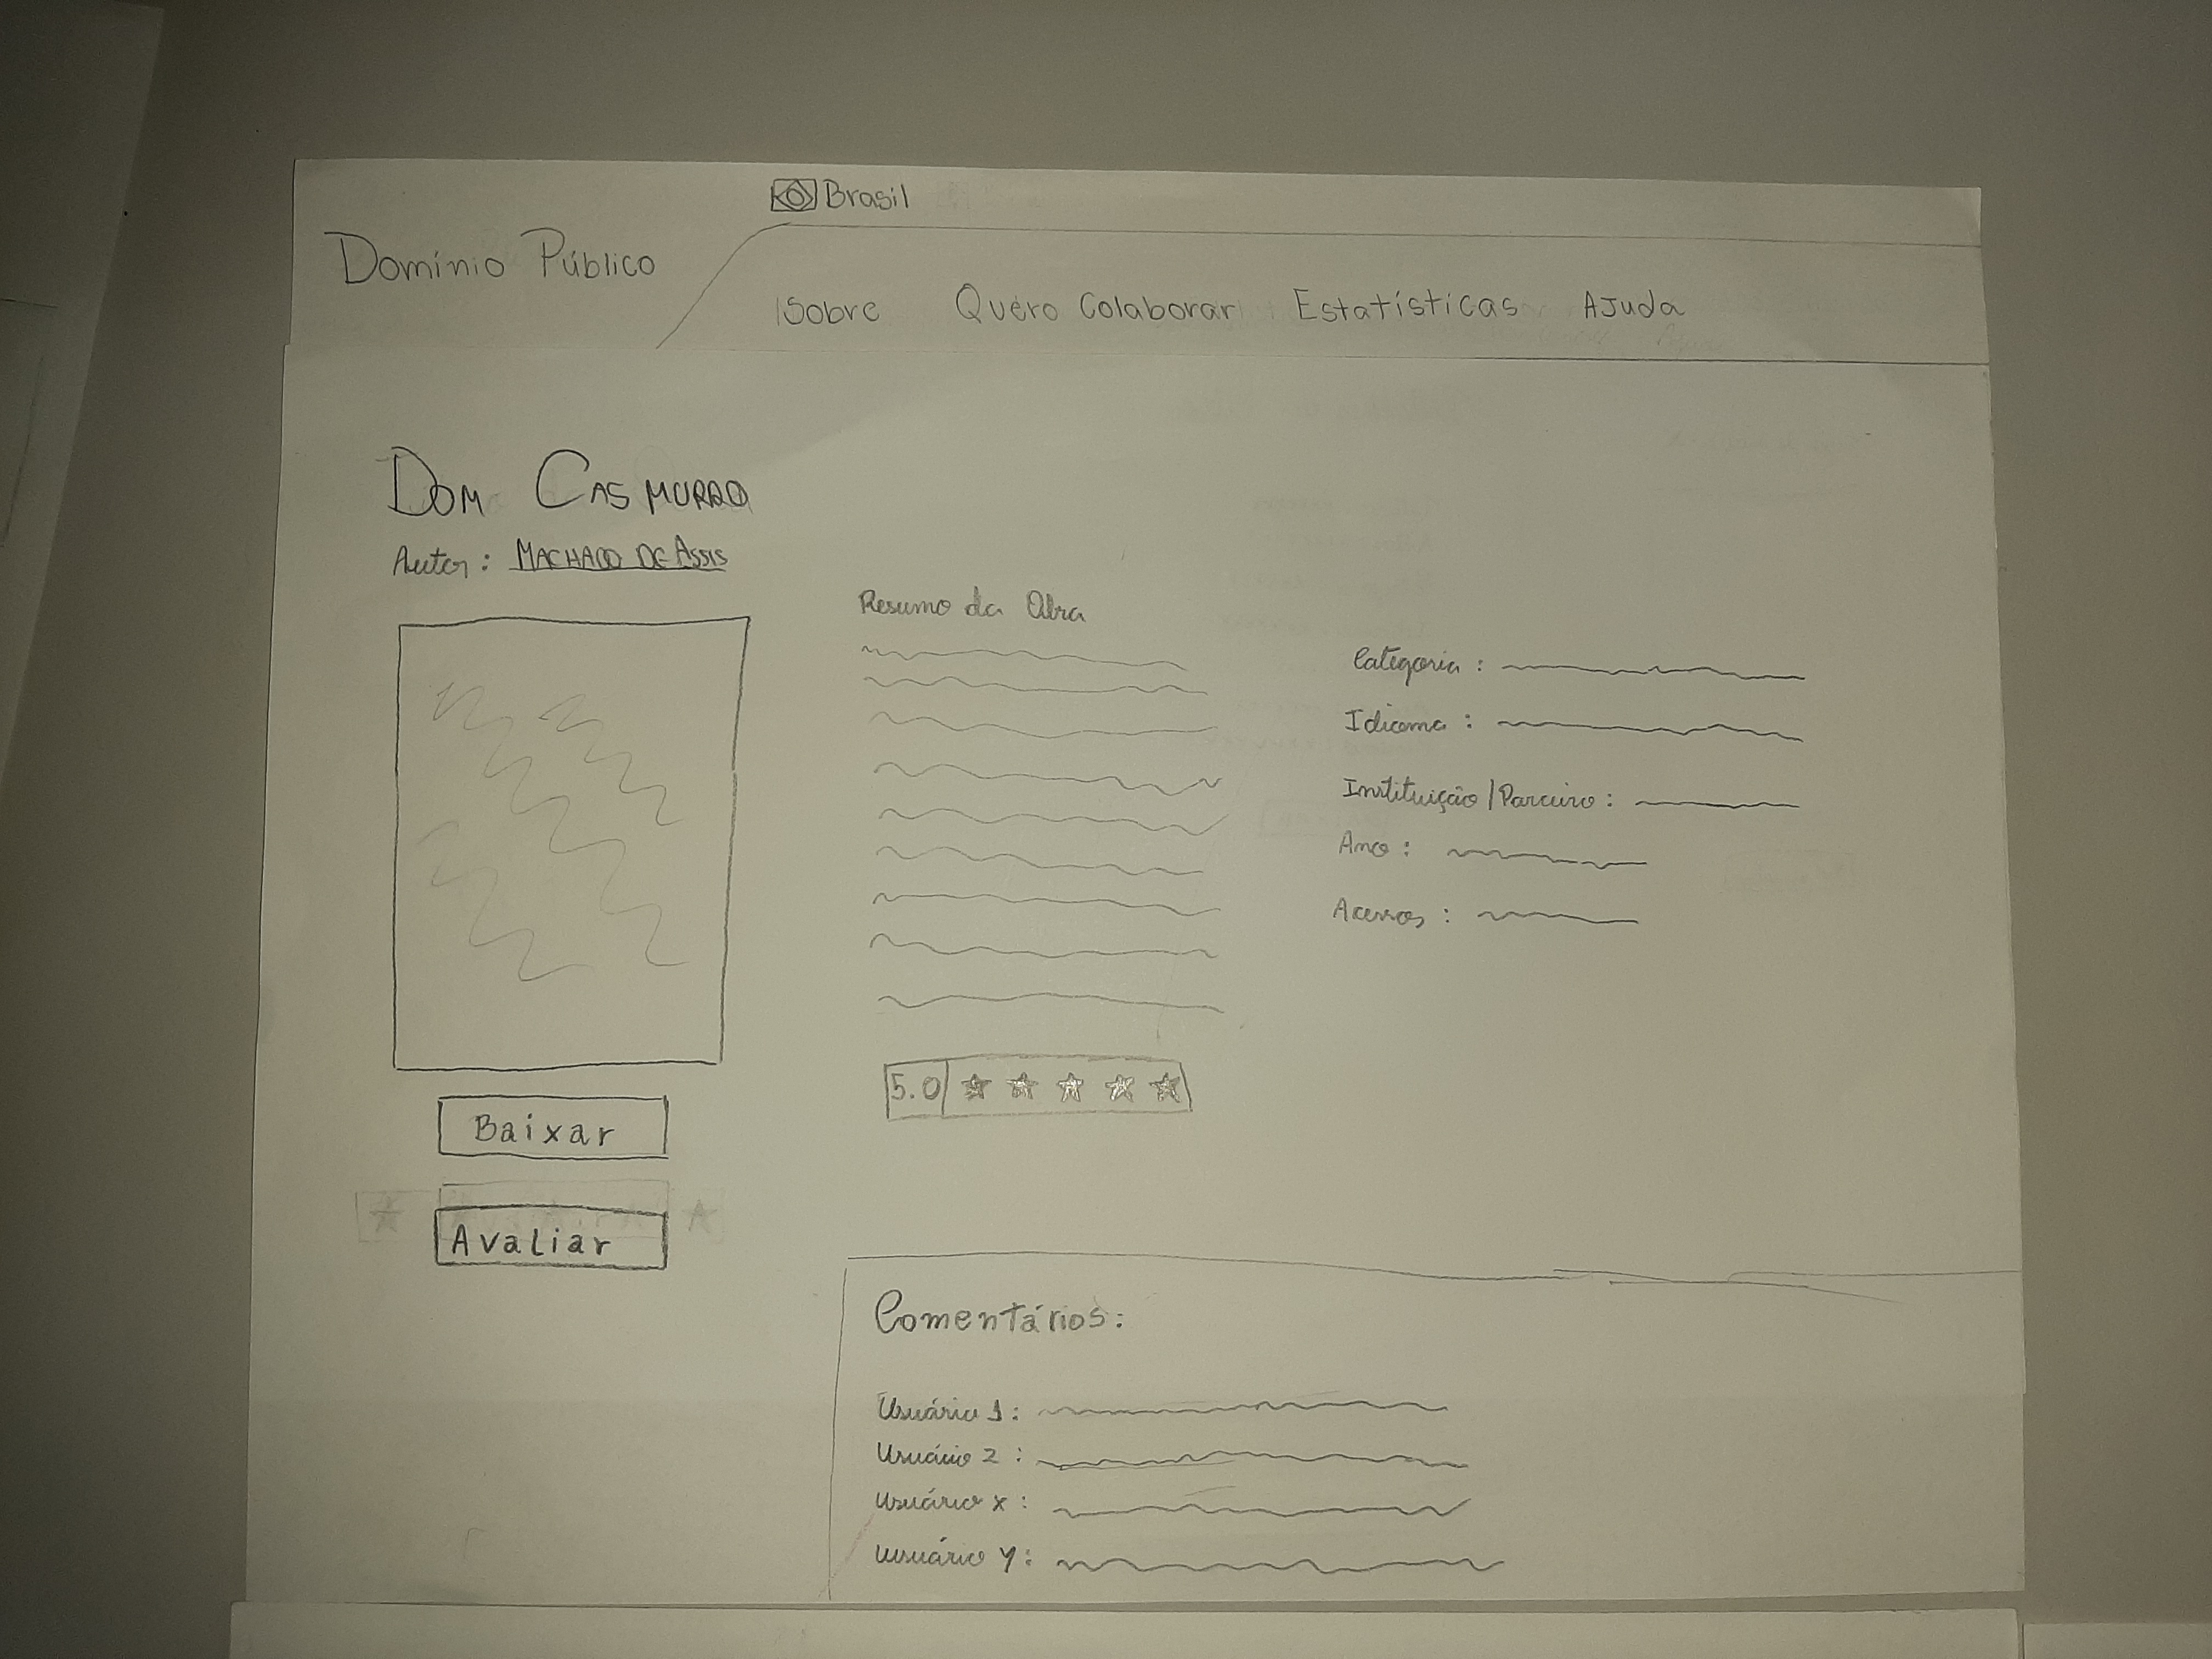 Brasil
Domínio Público
Sobre Quero Colaborar Estatísticas Ajuda
DOM CASMURRO
Autor: MACHADO DE ASSIS
Resumo da Obra
Categoria:
Idioma:
Instituição/Parceiro:
Ano:
Acessos:
5.0
Baixar
Avaliar
Comentários:
Usuário 1:
Usuário 2:
Usuário x:
Usuário y: